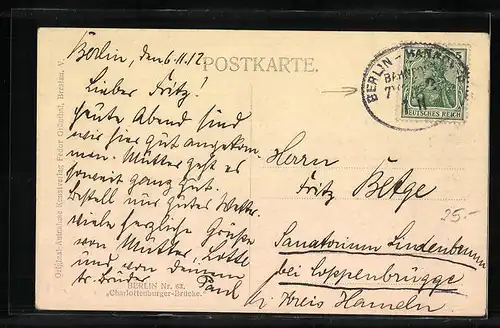 Berlin, den 6.11.12
POSTKARTE.
Lieber Fritz!
Heute Abend sind
wir hier gut angekom-
men. Mutter geht es
soweit ganz gut.
Bestell uns gutes Wetter.
Viele herzliche Grüße
von Mutter, Lotte
und von deinem
tr. Bruder Paul
BERLIN Nr. 63.
„Charlottenburger-Brücke.
Original-Aufnahme Kunstverlag Fedor Breslau, V.
BERLIN - HANNOVER
BAHNPOST
DEUTSCHES REICH
Herrn
Fritz Betge
25.-
Sanatorium Lindenbrunn
bei Coppenbrügge
Kreis Hameln.